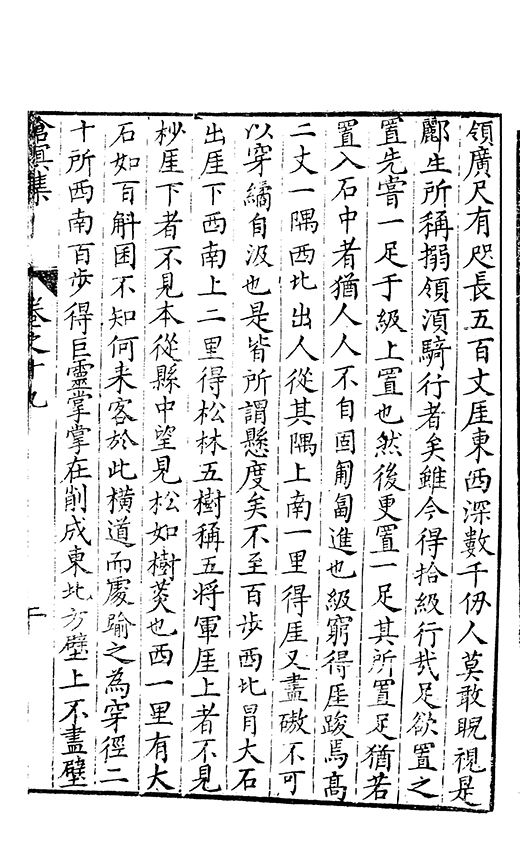 領廣尺有咫長五百丈厓東西深數千仞人莫敢睨視是
酈生所稱搦領湏騎行者矣雖今得拾級行㢤足欲置之
置先嘗一足于級上置也然後更置一足其所置足猶若
置入石中者猶人人不自固匍匐進也級窮得厓踆焉高
二丈一隅西北出人從其隅上南一里得厓又盡礉不可
以穿繘自汲也是皆所謂懸度矣不至百步西北冒大石
出厓下西南上二里得松林五樹稱五将軍厓上者不見
杪厓下者不見本從縣中望見松如樹荄也西一里有大
石如百斛囷不知何来客於此橫道而䖏踰之為穿徑二
十所西南百步得巨靈掌掌在削成東北方壁上不盡壁
滄溟集
卷之十九
十